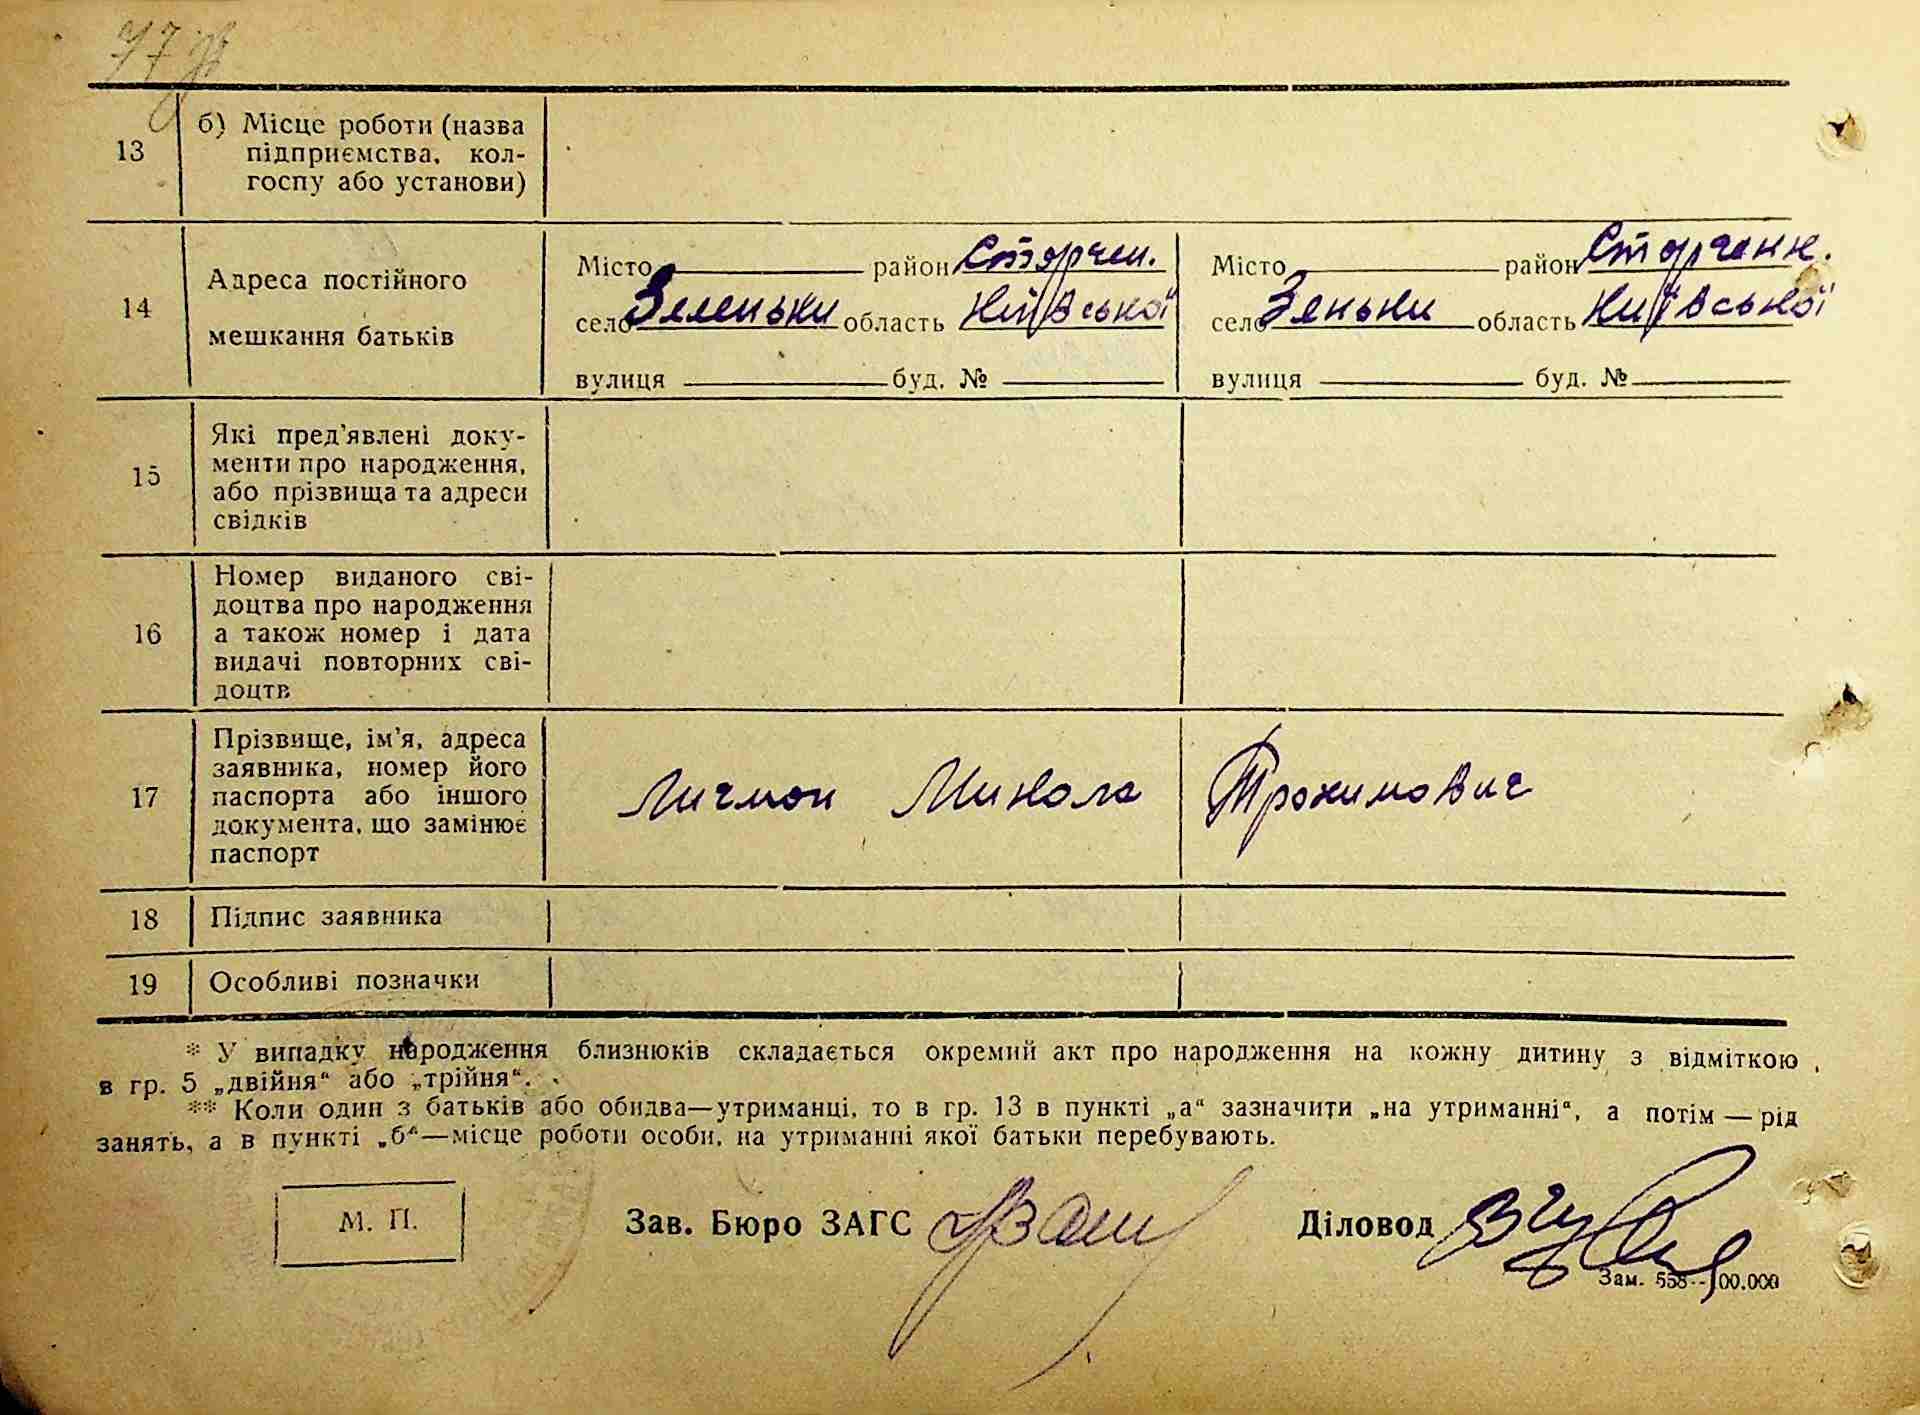 77
13
б) Місце роботи (назва
підприємства, кол-
госпу або установи)
14
Адреса постійного
мешкання батьків
Місто район Сторчен.
село Зеленьки область Київської
вулиця буд. №
Місто район Сторченк.
село Зеньки область Київської
вулиця буд. №
15
Які пред'явлені доку-
менти про народження,
або прізвища та адреси
свідків
16
Номер виданого сві-
доцтва про народження
а також номер і дата
видачі повторних сві-
доцтв
17
Прізвище, ім'я, адреса
заявника, номер його
паспорта або іншого
документа, що замінює
паспорт
Личман Микола Трохимович
18
Підпис заявника
19
Особливі позначки
* У випадку народження близнюків складається окремий акт про народження на кожну дитину з відміткою
в гр. 5 „двійня“ або „трійня“.
** Коли один з батьків або обидва—утриманці, то в гр. 13 в пункті „а“ зазначити „на утриманні“, а потім — рід
занять, а в пункті „б“—місце роботи особи, на утриманні якої батьки перебувають.
М. П.
Зав. Бюро ЗАГС
Діловод
Зам. 558--100.000